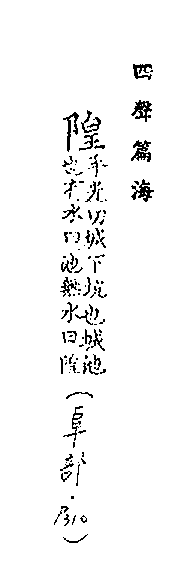 四聲篇海
隍乎光切城下坑也城池
也有水曰池無水曰隍
(阜部·)